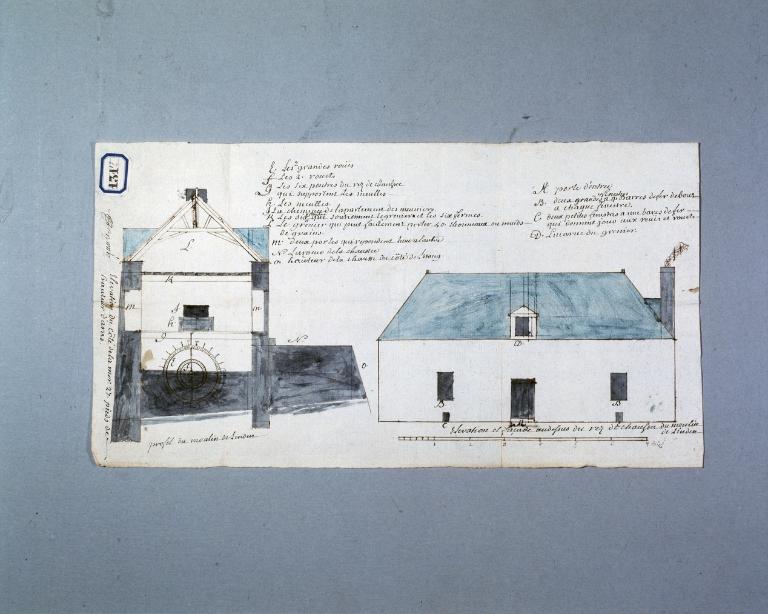 131
E Les 2 grandes roües
F Les 2 roüets
G Les six poutres du rez de chaussee
qui supportent les meulles
H Les meulles
I La cheminée de l'apartement des meuniers
K Les qui soutiennent le grenier et les six fermes.
L Le grenier qui peut facilement porter 40 thonneaux ou muids
de grains.
m deux portes qui repondent
N Largeur de la chaussée
o hauteur de la chaussée du côté de l'étang
A porte d'entrée
B deux grandes fenetres a 4 barres de fer debout
a chaque fenetre.
C deux petites fenetres a une barre de fer
qui donnent jour aux roües et roüets
D Lucarne du grenier.
L
K
m
m
I
h
g
N
o
D
B
B
C
A
Elevation du côté de la mer 27 pieds de
hauteur
profil du moulin de
Elevation et façade audessus du rez de chaussee du moulin
de